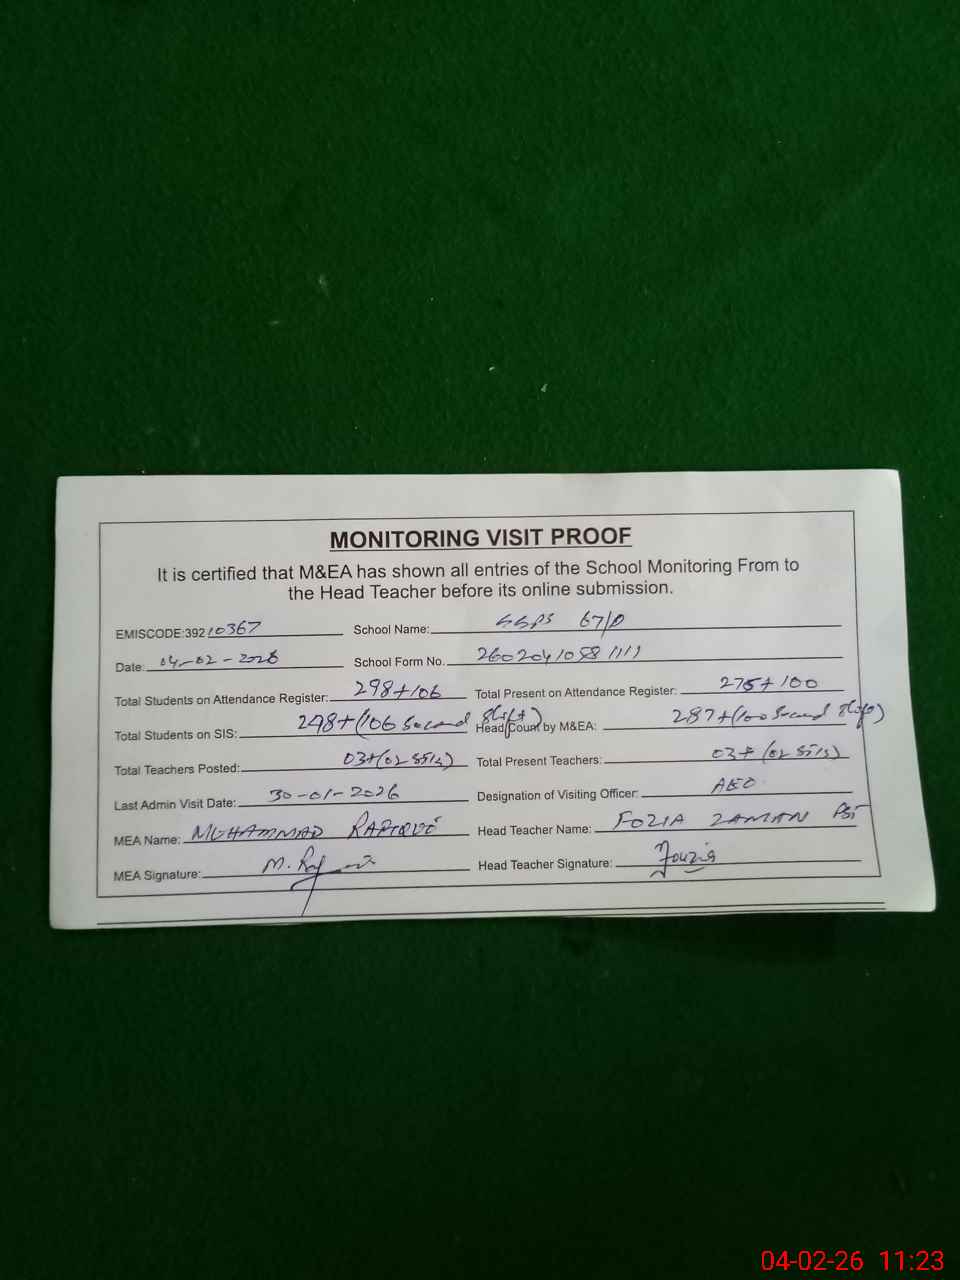 MONITORING VISIT PROOF
It is certified that M&EA has shown all entries of the School Monitoring From to
the Head Teacher before its online submission.
EMISCODE:39210367 School Name: GGPS 67/D
Date: 04-02-2026 School Form No. 2602041058 1111
Total Students on Attendance Register: 298+106 Total Present on Attendance Register: 275+100
Total Students on SIS: 298+(106 Second Shift) Head Count by M&EA: 287+(100 Second Shift)
Total Teachers Posted: 03+(02 SSIs) Total Present Teachers: 03+(02 SSIs)
Last Admin Visit Date: 30-01-2026 Designation of Visiting Officer: AEO
MEA Name: MUHAMMAD RAFIQUE Head Teacher Name: FOZIA ZAMAN PST
MEA Signature: Head Teacher Signature: Fouzia
04-02-26 11:23